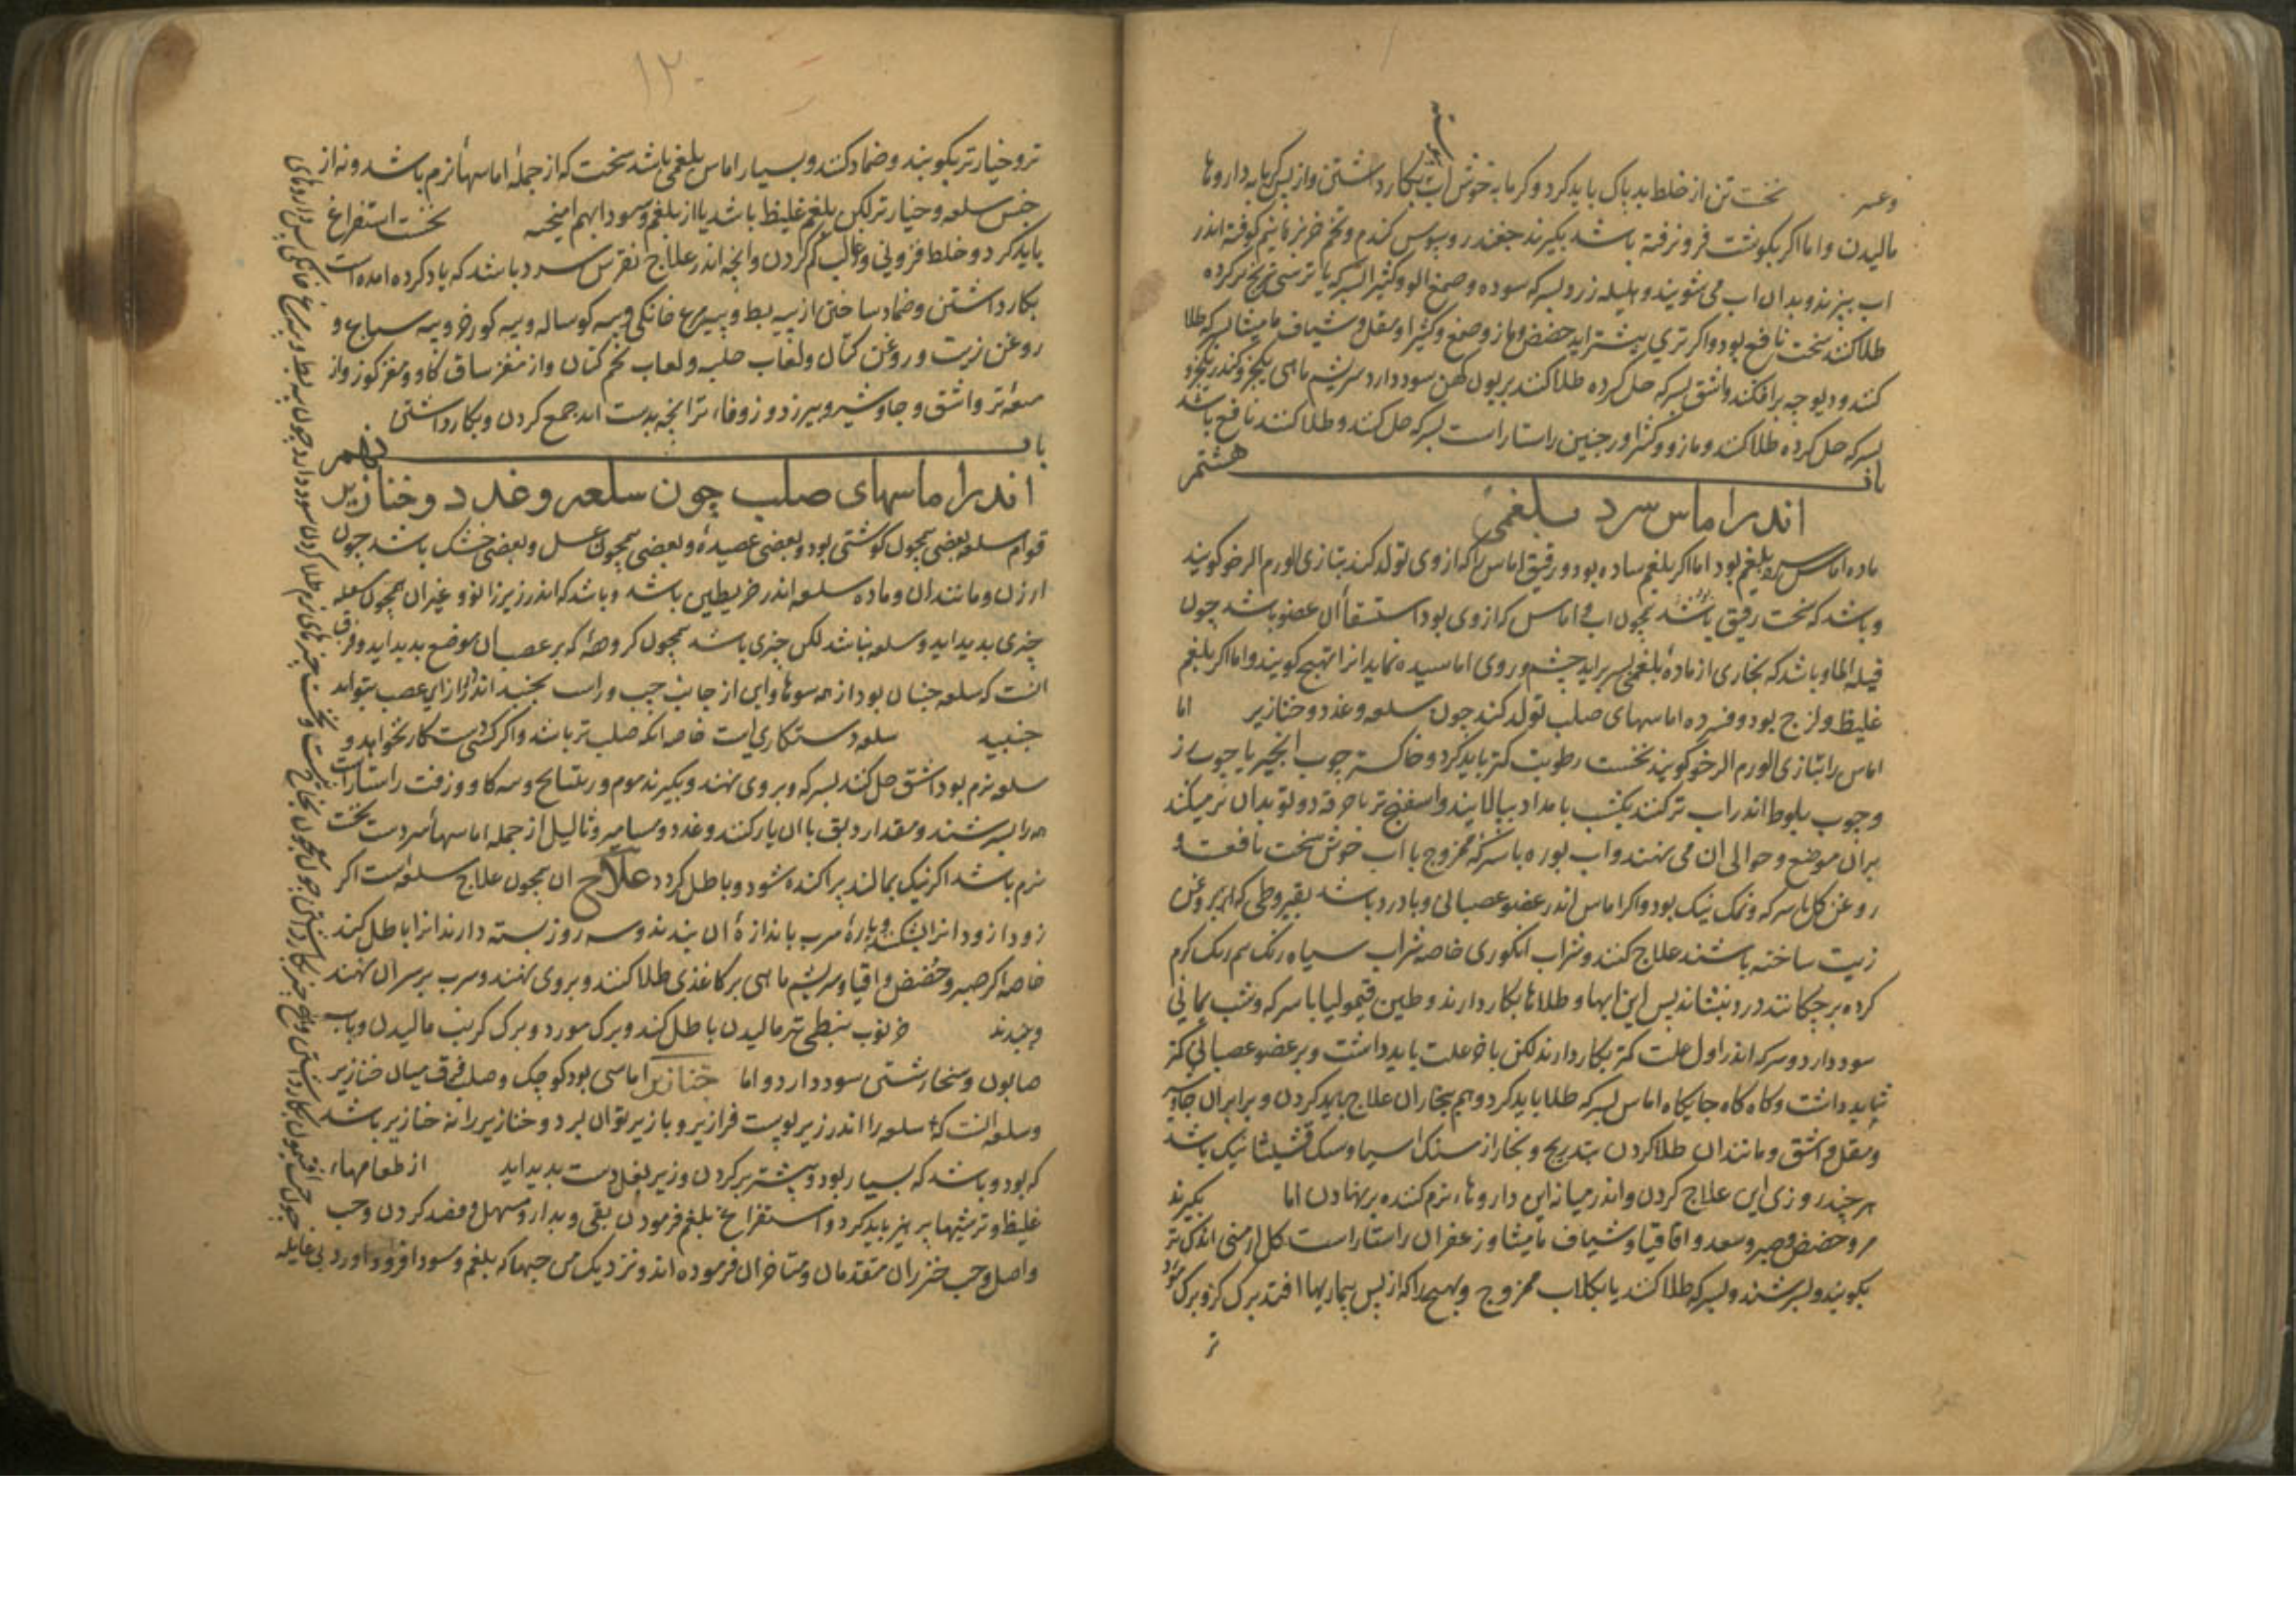 وعسر نخست تن از خلط بد پاک باید کرد و کرمابه خوش اب بکار داشتن و از پس کرمابه داروها
مالیدن و اما اکر بکوشت فرو نرفته باشد بکیرند جغندر و سبوس کندم و تخم خربزه نیم کوفته اندر
اب بپزند و بدان اب می شویند و هلیله زرد بسرکه سوده و صمغ الو و کثیرا بسرکه یا ترشی ترنج تر کرده
طلا کنند سخت نافع بود و اکر تری بیشتر اید حضض و مازو و صمغ و کثیرا و مقل و شیاف مامیثا بسرکه طلا
کنند و دیوجه برافکنند و اشق بسرکه حل کرده طلا کنند بر یون کهن سود دارد سریشم ماهی
بسرکه حل کرده طلا کنند و مازو و کثیرا راستاراست بسرکه حل کنند و طلا کنند نافع باشد
باب هشتم
اندر اماس سرد بلغمی
ماده اماس سرد بلغم بود اما اکر بلغم ساده بود و رقیق اماس را که از وی تولد کند بتازی الورم الرخو کویند
و باشد که سخت رقیق باشد همچون اب و اماس که از وی بود استسقا ان عضو باشد چون
قیله الما و باشد که بخاری از ماده بلغمی بسر براید چشم و روی اماسیده نماید انرا تهبج کویند و اما اکر بلغم
غلیظ و لزج بود و فسرده اماسهای صلب تولد کند چون سلعه و غدد و خنازیر اما
اماس را بتازی الورم الرخو کویند نخست رطوبت کمتر باید کرد و خاکستر چوب انجیر یا چوب رز
و چوب بلوط اندر اب تر کنند یکشب بامداد بپالایند و اسفنج تر یا خرقه دو تو بدان تر میکنند
بران موضع و حوالی ان می نهند و اب بوره با سرکه ممزوج با اب خوش سخت نافعست و
روغن کل با سرکه و نمک نیک بود و اکر اماس اندر عضو عصبانی و با درد باشد بقیروطی که از روغن
زیت ساخته باشند علاج کنند و شراب انکوری خاصه شراب سیاه رنک نیم کرم
کرده برچکانند درد بنشاند پس این ابها و طلاها بکار دارند و طین قیمولیا با سرکه و شب یمانی
سود دارد و سرکه اندر اول علت کمتر بکار دارند لکن باخر علت باید داشت و بر عضو عصبانی کمتر
شاید داشت و کاه کاه جایکاه اماس بسرکه طلا باید کرد و هم بخار ان علاج باید کردن و برابران جاوشیر
و مقل و اشق و مانند ان طلا کردن بتدریج و بخار از سنک اسیا و سنک قشیشا نیک باشد
هر چند روزی این علاج کردن و اندر میانه این داروها نرم کننده بر نهادن اما بکیرند
مر و حضض و صبر و سعد و اقاقیا و شیاف مامیثا و زعفران راستاراست کل ارمنی اندکی تر
بکوبند و بسرشند و بسرکه طلا کنند یا بکلاب ممزوج و تهبج را که از پس بیماریها افتد برک کز و برک مورد
تر
۱۲۰
تر و خیار تر بکوبند و ضماد کنند و بسیار اماس بلغمی باشد سخت که از جمله اماسها نرم باشد و نه از
جنس سلعه و خیار تر لکن بلغم غلیظ باشد یا از بلغم و سودا بهم امیخته نخست استفراغ
باید کرد و خلط فزونی و غالب کم کردن و انچه اندر علاج نقرس سرد باشد که یاد کرده امده است
بکار داشتن و ضماد ساختن از پیه بط و پیه مرغ خانکی و پیه کوساله و پیه کورخر و پیه سباع و
روغن زیت و روغن کتان و لعاب حلبه و لعاب تخم کتان و از مغز ساق کاو و مغز کوزن و از
میعه تر و اشق و جاوشیر و بیرزد و زوفا تر انچه بدست اید جمع کردن و بکار داشتی
باب نهم
اندر اماسهای صلب چون سلعه و غدد و خنازیر
قوام سلعه بعضی همچون کوشتی بود و بعضی عصیده و بعضی همچون عسل و بعضی خشک باشد چون
ارزن و مانند ان و ماده سلعه اندر خریطهٔ باشد و باشد که اندر زیر زانو و غیر ان همچون سلعه
چیزی بدید اید و سلعه نباشد لکن چیزی باشد همچون کروههٔ که بر عصب ان موضع بدید اید و فرق
انست که سلعه جنبان بود از همه سوها و این از جانب چپ و راست بجنبد اندر درازای عصب نتواند
جنبید سلعه دستکاری است خاصه انکه صلب تر باشد و اکر کسی دستکاری نخواهد و
سلعه نرم بود اشق حل کنند بسرکه و بر وی نهند و بکیرند موم و ریتیانج و پیه کاو و زفت راستاراست
همه را بسرشند و مقدار دبق با ان یار کنند و غدد و مسامیر و ثالیل از جمله اماسها سردست سخت
نرم باشد اکر نیک بمالند پراکنده شود و باطل کردد علاج ان همچون علاج سلعه است اکر
زود از زود انرا بشکنند و پارهٔ سرب باندازهٔ ان ببندند و سه روز بسته دارند انرا باطل کند
خاصه اکر صبر و حضض و اقاقیا و سریشم ماهی بر کاغذی طلا کنند و بر وی نهند و سرب بر سر ان نهند
و ببندند خرنوب نبطی تر مالیدن باطل کند و برک مورد و برک کرنب مالیدن و باب
صابون و سنجار شستی سود دارد و اما خنازیر اماسی بود کوچک و صلب فرق میان خنازیر
و سلعه انست که سلعه را اندر زیر پوست فراز بر و باز بر توان برد و خنازیر را نه خنازیر باشد
که بود و باشد که بسیار بود و بیشتر بر کردن و زیر بغل دست بدید اید از طعامهاء
غلیظ و ترشیها پرهیز باید کرد و استفراغ بلغم فرمودن بقی و بدارو مسهل و فصد کردن وجب
و اصل وجب خنزران متقدمان و متاخران فرموده اند و نزدیک من حبها که بلغم و سودا فرود اورد بی غایله